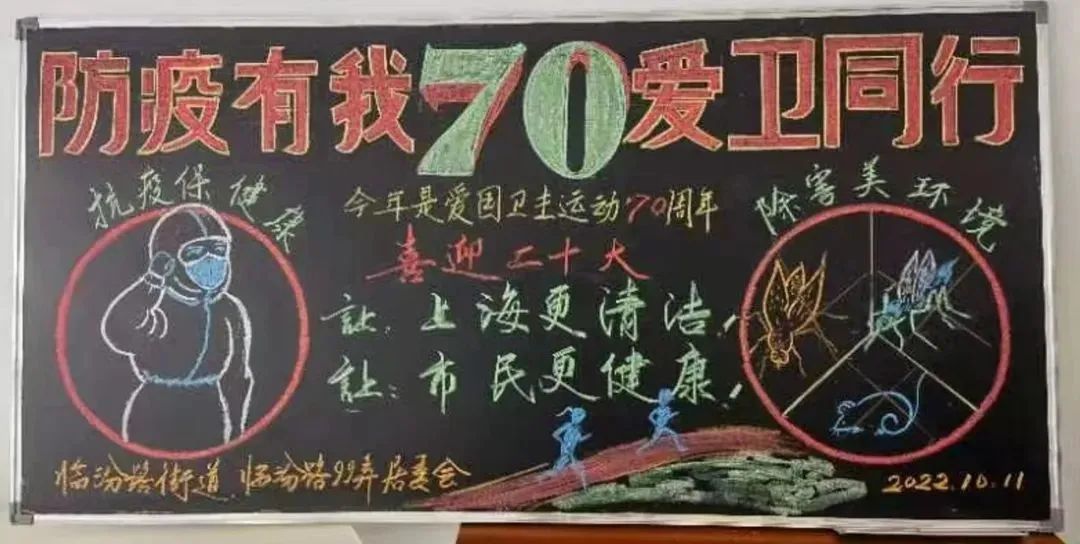 防疫有我70爱卫同行
抗疫保健康
今年是爱国卫生运动70周年
除害美环境
喜迎二十大
让:上海更清洁,
让:市民更健康,
临汾路街道 临汾路99弄居委会
2022.10.11